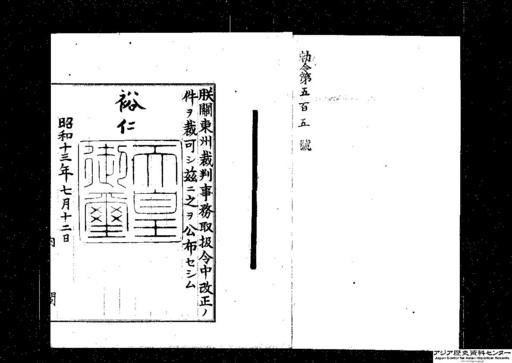 勅令第五百五號
朕關東州裁判事務取扱令中改正ノ
件ヲ裁可シ茲ニ之ヲ公布セシム
裕仁
天皇
御璽
昭和十三年七月十二日
内閣
アジア歴史資料センター
Japan Center for Asian Historical Records